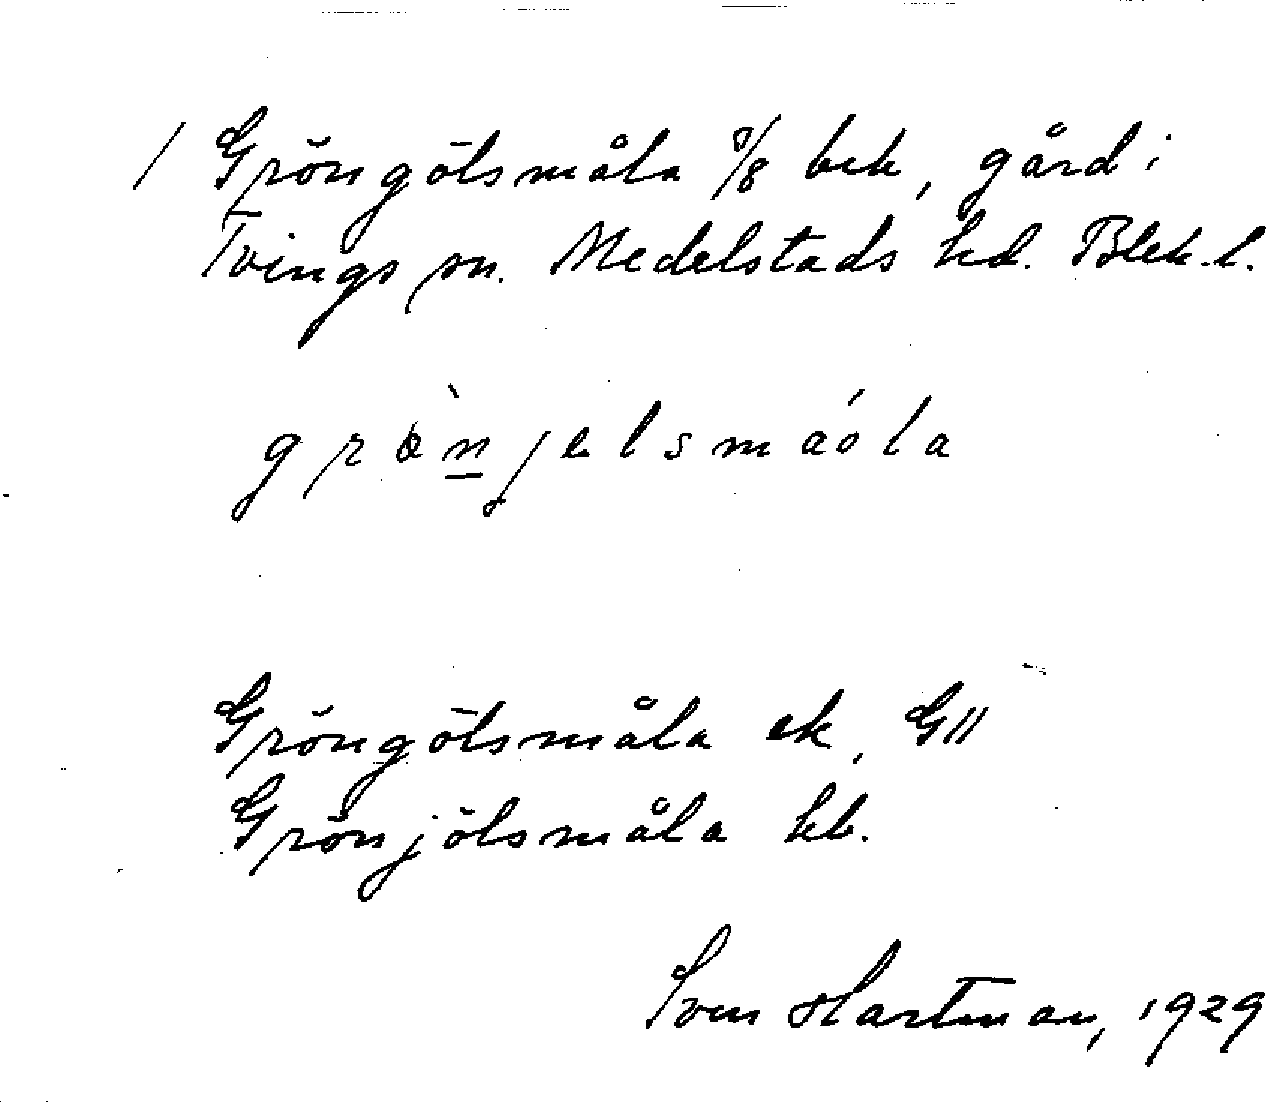 / Gröngölsmåla 7/8 bek, gård i
Tvings sn. Medelstads hd. Blek. l.
Gröngölsmåla ek, G11
Grönjölsmåla kb.
Sven Hartman, 1929